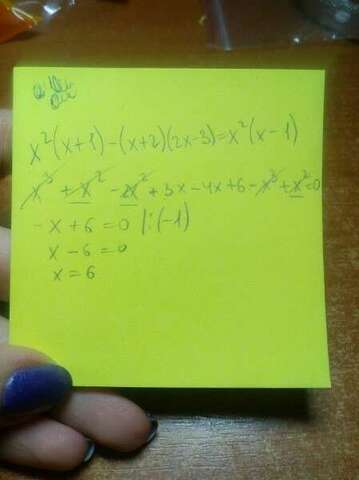 x²(x+1)-(x+2)(2x-3)=x²(x-1)
x³+x²-2x²+3x-4x+6-x³+x²=0
-x+6=0 |:(-1)
x-6=0
x=6